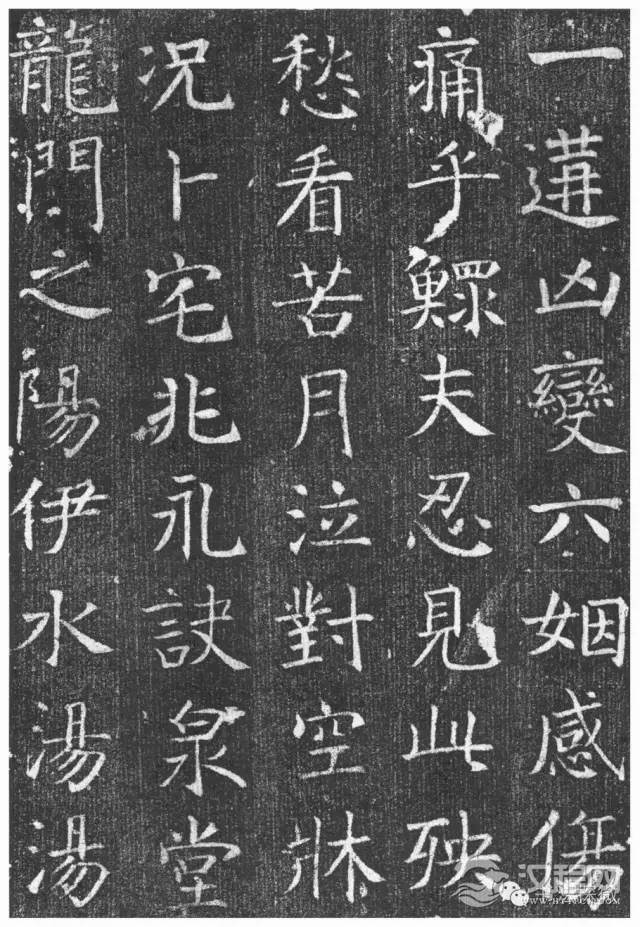 一遘凶變六姻感傷
痛乎鰥夫忍見此殃
愁看苦月泣對空牀
况卜宅兆永訣泉堂
龍門之陽伊水湯湯
汉程网
WWW.HTTPCN.COM